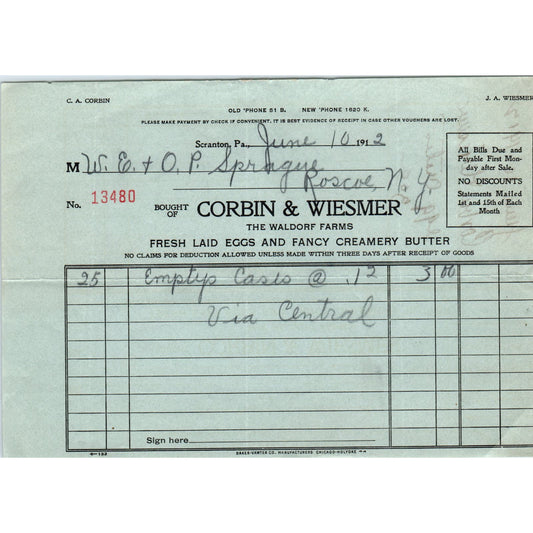 C. A. CORBIN
J. A. WIESMER
OLD 'PHONE 51 B. NEW 'PHONE 1620 K.
PLEASE MAKE PAYMENT BY CHECK IF CONVENIENT. IT IS BEST EVIDENCE OF RECEIPT IN CASE OTHER VOUCHERS ARE LOST.
Scranton, Pa., June 10 1912
M W. E. + O. P. Sprague
Roscoe, N. Y
All Bills Due and
Payable First Mon-
day after Sale.
NO DISCOUNTS
Statements Mailed
1st and 15th of Each
Month
No. 13480
BOUGHT
OF CORBIN & WIESMER
THE WALDORF FARMS
FRESH LAID EGGS AND FANCY CREAMERY BUTTER
NO CLAIMS FOR DEDUCTION ALLOWED UNLESS MADE WITHIN THREE DAYS AFTER RECEIPT OF GOODS
25 Emptys Cases @ .12 3 00
Via Central
Sign here
BAKER-VAWTER CO. MANUFACTURERS CHICAGO-HOLYOKE